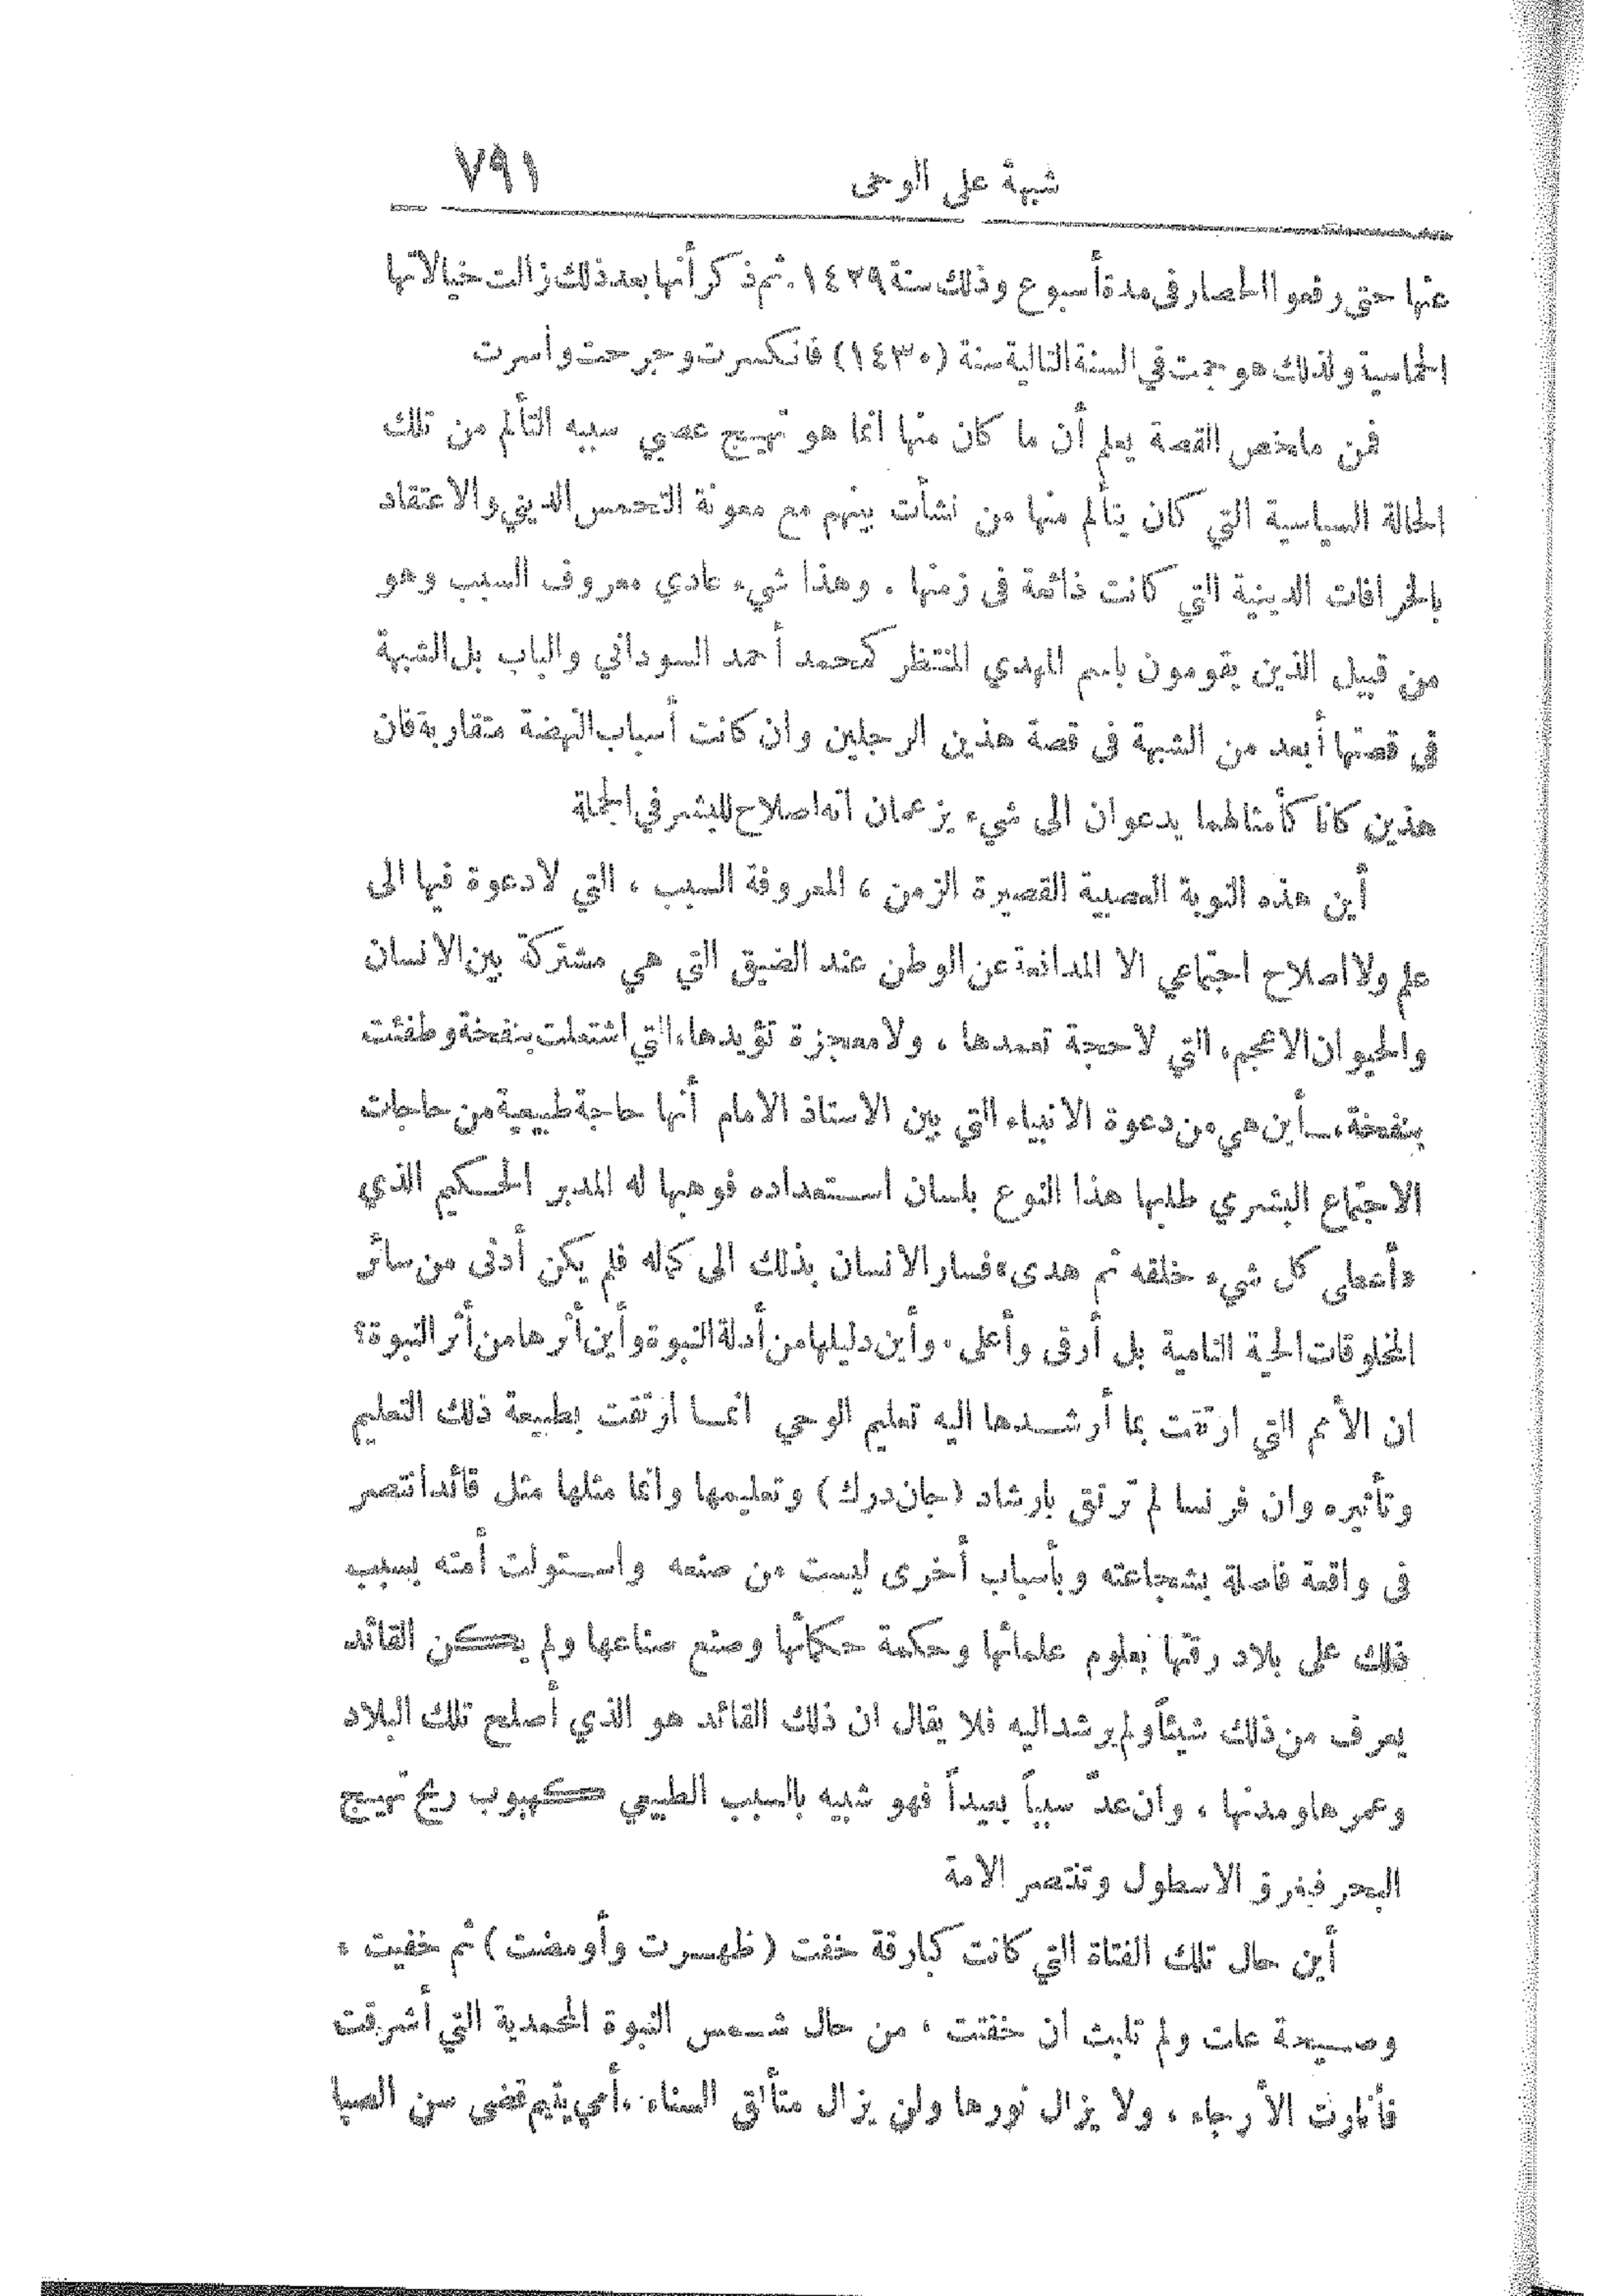 شبهة على الوحى ٧٩١
عنها حتى رفعوا الحصار فى مدة أسبوع وذلك سنة ١٤٢٩. ثم ذكر أنها بعد ذلك زالت خيالاتها
الحماسية ولذلك هوجمت في السنة التالية سنة (١٤٣٠) فانكسرت وجرحت وأسرت
فمن ملخص القصة يعلم أن ما كان منها انما هو تهيج عصبي سببه التألم من تلك
الحالة السياسية التي كان يتألم منها من نشأت بينهم مع معونة التحمس الديني والاعتقاد
بالخرافات الدينية التي كانت ذائعة فى زمنها . وهذا شيء عادي معروف السبب وهو
من قبيل الذين يقومون باسم المهدي المنتظر كمحمد أحمد السوداني والباب بل الشبهة
فى قصتها أبعد من الشبهة فى قصة هذين الرجلين وان كانت أسباب النهضة متقاربة فان
هذين كانا كأمثالهما يدعوان الى شيء يزعمان انه اصلاح للبشر في الجملة
أين هذه النوبة العصبية القصيرة الزمن ، المعروفة السبب ، التي لا دعوة فيها الى
علم ولا اصلاح اجتماعي الا المدافعة عن الوطن عند الضيق التي هي مشتركة بين الانسان
والحيوان الاعجم، التي لا حجة تعمدها ، ولا معجزة تؤيدها، التي اشتعلت بنفخة وطفئت
بنفخة، ـ أين هي من دعوة الانبياء التي بين الاستاذ الامام أنها حاجة طبيعية من حاجات
الاجتماع البشري طلبها هذا النوع بلسان استعداده فوهبها له المدبر الحكيم الذي
«أعطى كل شيء خلقه ثم هدى» فسار الانسان بذلك الى كماله فلم يكن أدنى من سائر
المخلوقات الحية النامية بل أرقى وأعلى . وأين دليلها من أدلة النبوة وأين أثرها من أثر النبوة؟
ان الأمم التي ارتقت بما أرشدها اليه تعليم الوحي انما ارتقت بطبيعة ذلك التعليم
وتأثيره وان فرنسا لم ترتق بارشاد (جان درك) وتعليمها وانما مثلها مثل قائد انتصر
فى واقعة فاصلة بشجاعته وبأسباب أخرى ليست من صنعه واستولت أمته بسبب
ذلك على بلاد رقتها بعلوم علمائها وحكمة حكمائها وصنع صناعها ولم يكن القائد
يعرف من ذلك شيئاً ولم يرشد اليه فلا يقال ان ذلك القائد هو الذي أصلح تلك البلاد
وعمرها ومدنها ، وان عدّ سبباً بعيداً فهو شبيه بالسبب الطبيعي كهبوب ريح تهيج
البحر فيغرق الاسطول وتنتصر الامة
أين حال تلك الفتاة التي كانت كبارقة خفت (ظهرت وأومضت) ثم خفيت ،
وصيحة علت ولم تلبث ان خفتت ، من حال شمس النبوة المحمدية التي أشرقت
فأنارت الأرجاء ، ولا يزال نورها ولن يزال متألق السناء ، أمي يتيم قضى سن الصبا